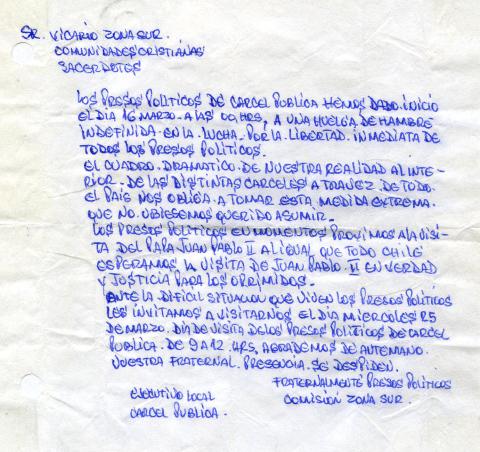 SR. VICARIO ZONA SUR.
COMUNIDADES CRISTIANAS
SACERDOTES
LOS PRESOS POLITICOS DE CARCEL PUBLICA HEMOS DADO. INICIO
EL DIA 16 MARZO - A LAS 00 HRS, A UNA HUELGA DE HAMBRE
INDEFINIDA - EN LA. LUCHA - POR LA. LIBERTAD. INMEDIATA DE
TODOS LOS PRESOS POLITICOS.
EL CUADRO. DRAMATICO. DE NUESTRA REALIDAD AL INTE-
RIOR - DE LAS DISTINTAS CARCELES A TRAVEZ. DE TODO.
EL PAIS NOS OBLIGA. A TOMAR ESTA. MEDIDA EXTREMA.
QUE NO. UBIESEMOS QUERIDO ASUMIR.-
LOS PRESOS POLITICOS EN MOMENTOS PROVIMOS A LA VISI-
TA DEL PAPA JUAN PABLO II AL IGUAL QUE TODO CHILE
ESPERAMOS LA VISITA DE JUAN PABLO. II EN VERDAD
Y JUSTICIA PARA LOS OPRIMIDOS.-
ANTE LA DIFICIL SITUACION QUE VIVEN LOS PRESOS POLITICOS
LES INVITAMOS A VISITARNOS EL DIA MIERCOLES 25
DE MARZO. DIA DE VISITA DE LOS PRESOS POLITICOS DE CARCEL
PUBLICA. DE 9 A 12 HRS, AGRADEMOS DE ANTEMANO.
VUESTRA FRATERNAL. PRESENCIA. SE DESPIDEN.
FRATERNALMENTE PRESOS POLITICOS
EJECUTIVO LOCAL
COMISION ZONA SUR.
CARCEL PUBLICA.